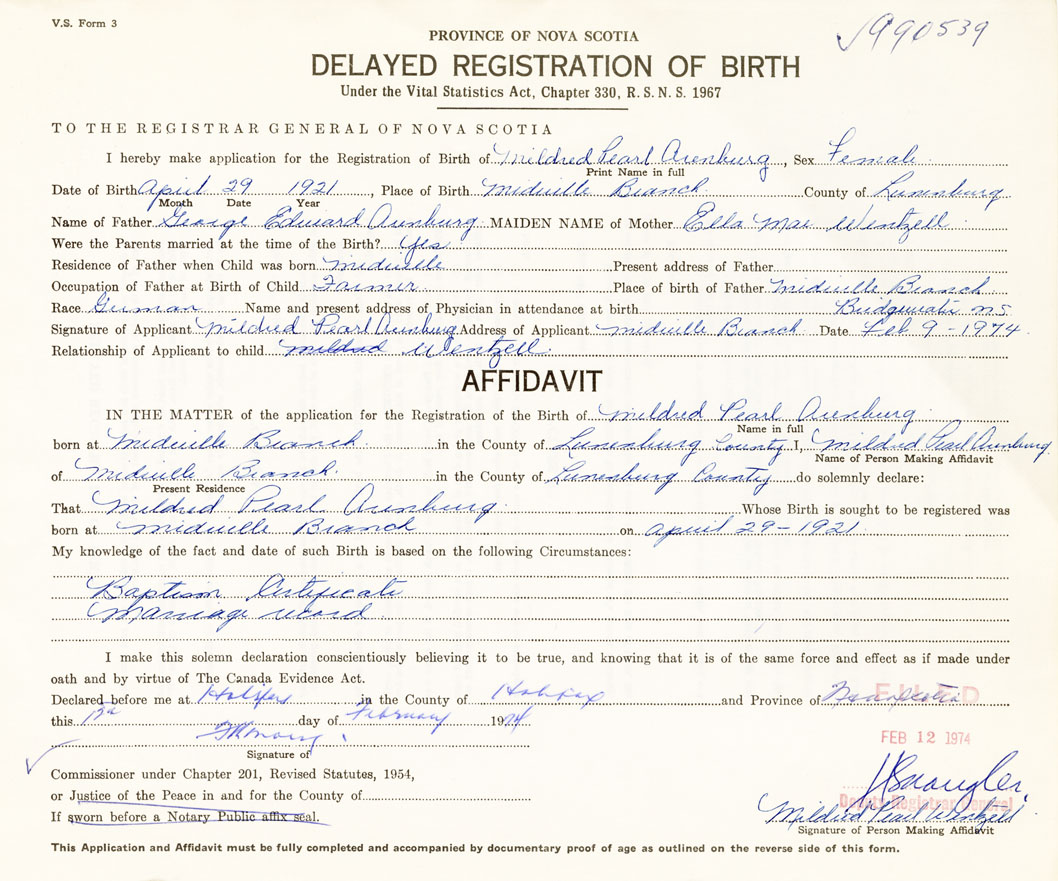 V.S. Form 3
990539
PROVINCE OF NOVA SCOTIA
DELAYED REGISTRATION OF BIRTH
Under the Vital Statistics Act, Chapter 330, R. S. N. S. 1967
TO THE REGISTRAR GENERAL OF NOVA SCOTIA
I hereby make application for the Registration of Birth of Mildred Pearl Arenburg, Sex Female
Print Name in full
Date of Birth April 29 1921, Place of Birth Midville Branch County of Lunenburg
Month Date Year
Name of Father George Edward Arenburg MAIDEN NAME of Mother Ella Mae Wentzell
Were the Parents married at the time of the Birth? Yes
Residence of Father when Child was born Midville Present address of Father
Occupation of Father at Birth of Child Farmer Place of birth of Father Midville Branch
Race German Name and present address of Physician in attendance at birth Bridgewater N.S.
Signature of Applicant Mildred Pearl Arenburg Address of Applicant Midville Branch Date Feb 9 - 1974
Relationship of Applicant to child Mildred Wentzell
AFFIDAVIT
IN THE MATTER of the application for the Registration of the Birth of Mildred Pearl Arenburg
Name in full
born at Midville Branch in the County of Lunenburg County I, Mildred Pearl Arenburg
Name of Person Making Affidavit
of Midville Branch in the County of Lunenburg County do solemnly declare:
Present Residence
That Mildred Pearl Arenburg Whose Birth is sought to be registered was
born at Midville Branch on April 29 - 1921
My knowledge of the fact and date of such Birth is based on the following Circumstances:
Baptism Certificate
Marriage record
I make this solemn declaration conscientiously believing it to be true, and knowing that it is of the same force and effect as if made under
oath and by virtue of The Canada Evidence Act.
Declared before me at Halifax in the County of Halifax and Province of Nova Scotia
FILED
this 12 day of February 1974
FEB 12 1974
Signature of
Commissioner under Chapter 201, Revised Statutes, 1954,
or Justice of the Peace in and for the County of
Deputy Registrar General
If sworn before a Notary Public affix seal.
Mildred Pearl Wentzell
Signature of Person Making Affidavit
This Application and Affidavit must be fully completed and accompanied by documentary proof of age as outlined on the reverse side of this form.